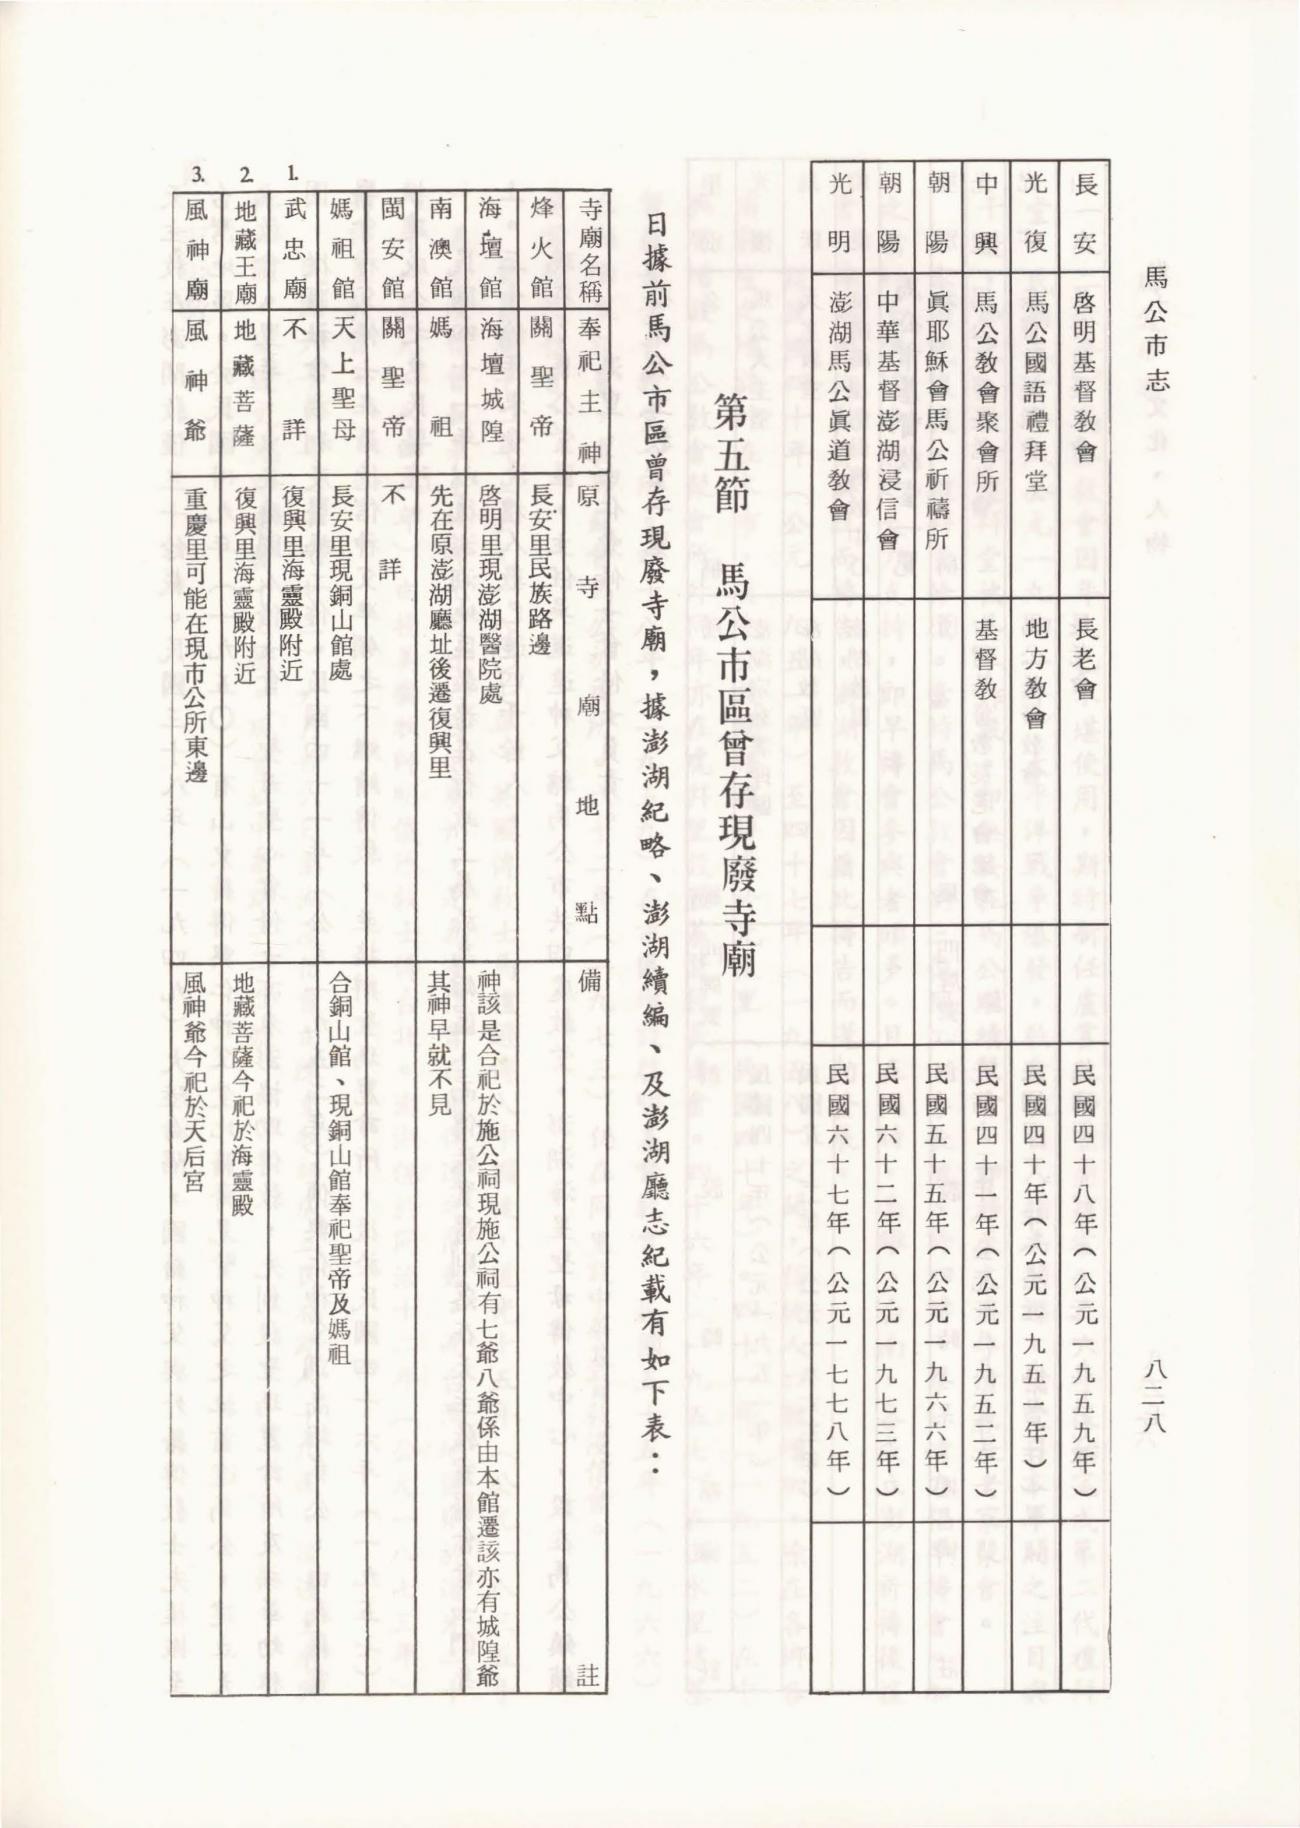 馬公市志
八二八
長安 啓明基督教會 長老會 民國四十八年(公元一九五九年)
光復 馬公國語禮拜堂 地方教會 民國四十年(公元一九五一年)
中興 馬公教會聚會所 基督教 民國四十一年(公元一九五二年)
朝陽 眞耶穌會馬公祈禱所 民國五十五年(公元一九六六年)
朝陽 中華基督澎湖浸信會 民國六十二年(公元一九七三年)
光明 澎湖馬公眞道教會 民國六十七年(公元一七七八年)
第五節 馬公市區曾存現廢寺廟
日據前馬公市區曾存現廢寺廟，據澎湖紀略、澎湖續編、及澎湖廳志紀載有如下表：
寺廟名稱 奉祀主神 原寺廟地點 備註
烽火館 關聖帝 長安里民族路邊
海壇館 海壇城隍 啓明里現澎湖醫院處 神該是合祀於施公祠現施公祠有七爺八爺係由本館遷該亦有城隍爺
南澳館 媽祖 先在原澎湖廳址後遷復興里 其神早就不見
閩安館 關聖帝 不詳
媽祖館 天上聖母 長安里現銅山館處 合銅山館、現銅山館奉祀聖帝及媽祖
1. 武忠廟 不詳 復興里海靈殿附近
2. 地藏王廟 地藏菩薩 復興里海靈殿附近 地藏菩薩今祀於海靈殿
3. 風神廟 風神爺 重慶里可能在現市公所東邊 風神爺今祀於天后宮